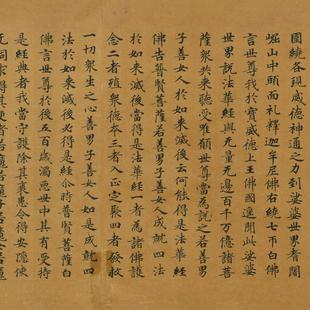 圍繞各現威德神通之力到娑婆世界耆闍
崛山中頭面而礼釋迦牟尼佛右繞七帀白佛
言世尊我於寶威德上王佛國遙聞此娑婆
世界說法華經與無量無邊百千万億諸菩
薩衆共來聽受唯願世尊當為說之若善男
子善女人於如來滅後云何能得是法華經
佛告普賢菩薩若善男子善女人成就四法
於如來滅後當得是法華經一者為諸佛護
念二者殖衆德本三者入正定聚四者發救
一切衆生之心善男子善女人如是成就四
法於如來滅後必得是經尒時普賢菩薩白
佛言世尊於後五百歲濁惡世中其有受持
是經典者我當守護除其衰患令得安隱使
无伺求得其便者若魔若魔